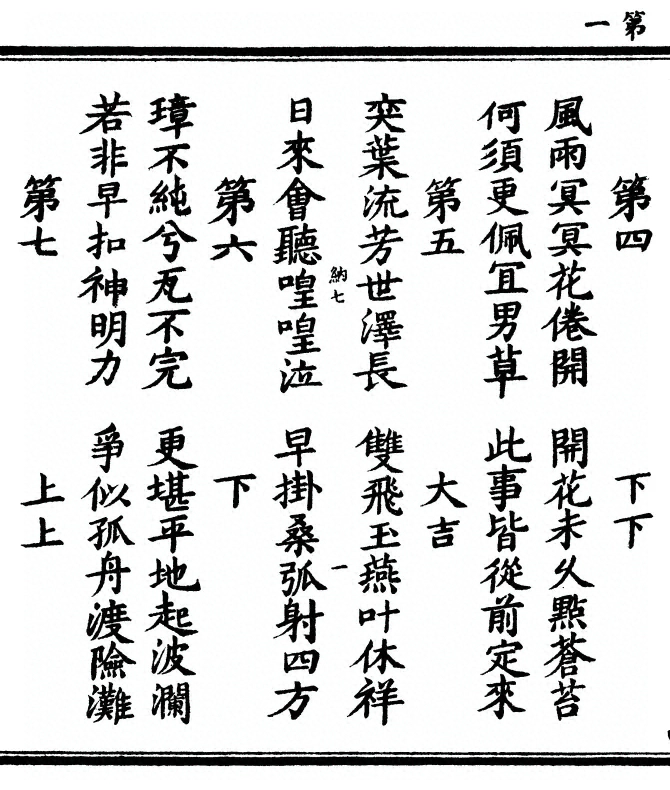 第一
第四 下下
風雨冥冥花倦開 開花未久點蒼苔
何須更佩宜男草 此事皆從前定來
第五 大吉
奕葉流芳世澤長 雙飛玉燕叶休祥
納七 一
日來會聽喤喤泣 早掛桑弧射四方
第六 下
璋不純兮瓦不完 更堪平地起波瀾
若非早扣神明力 爭似孤舟渡險灘
第七 上上